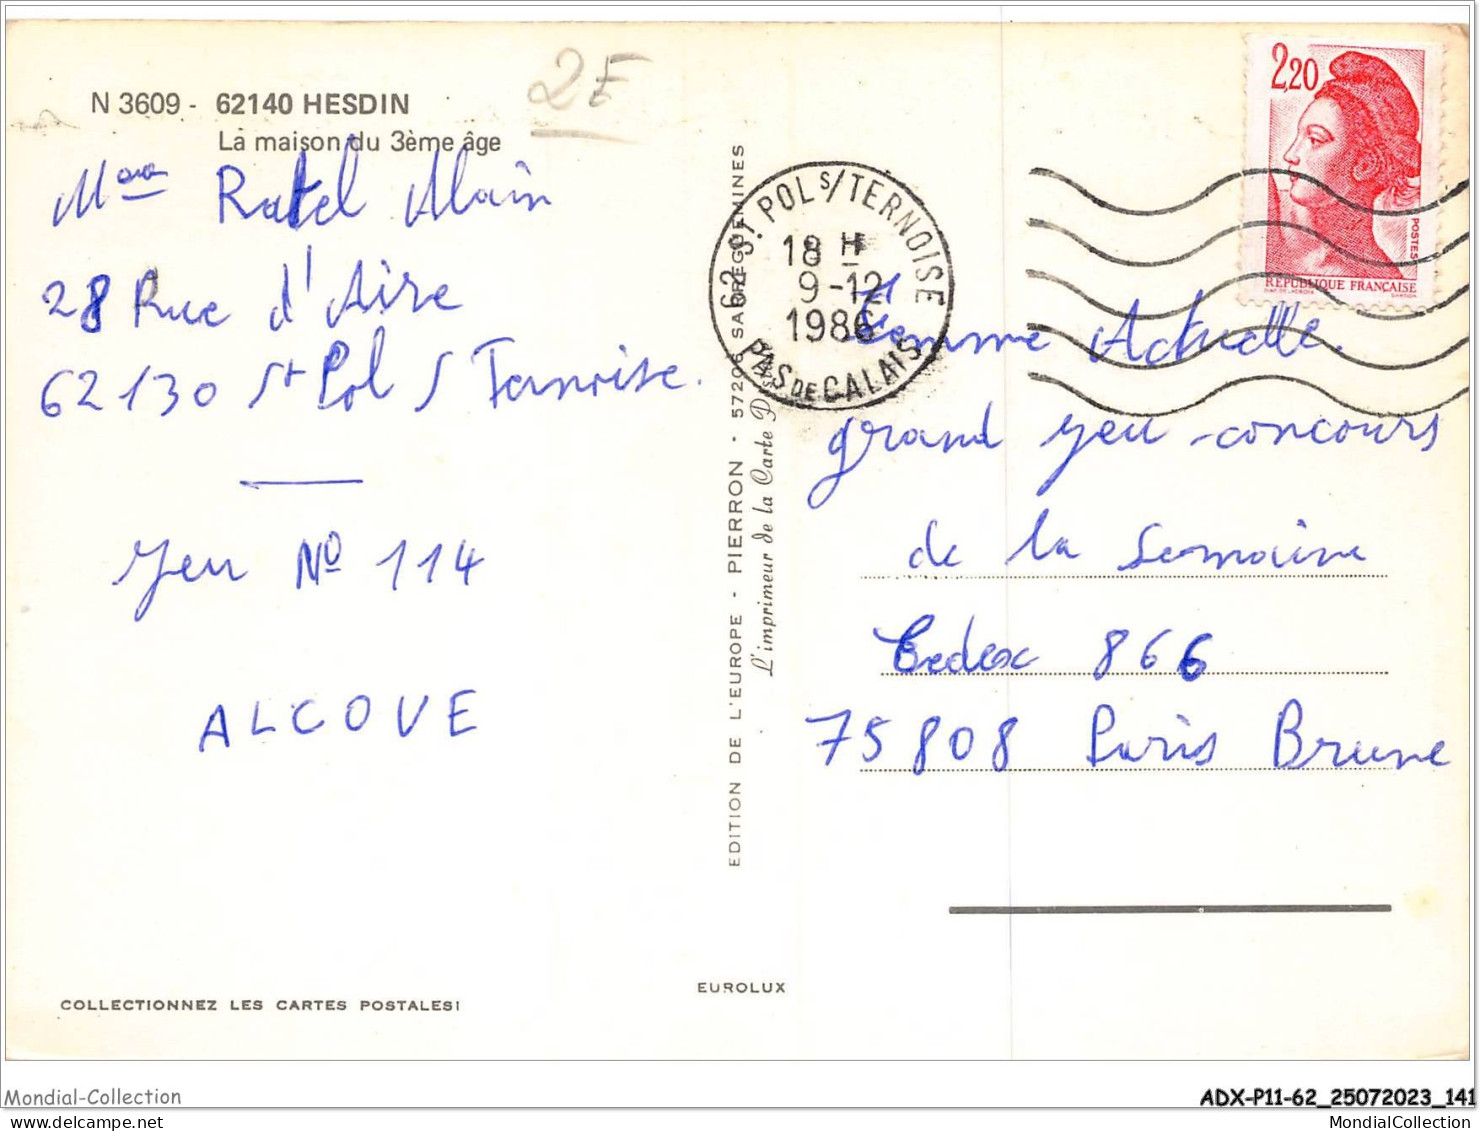 N 3609 - 62140 HESDIN
La maison du 3ème âge
2F
Mme Ratel Alain
28 Rue d'Aire
62130 St Pol S Ternoise.
Jeu Nº 114
ALCOVE
COLLECTIONNEZ LES CARTES POSTALES!
EDITION DE L'EUROPE - PIERRON - 57206 SARREGUEMINES
L'imprimeur de la Carte
EUROLUX
62 St POL S/TERNOISE
18 H
9-12
1986
PAS DE CALAIS
2,20
POSTES
REPUBLIQUE FRANÇAISE
Femme Actuelle.
grand jeu-concours
de la semaine
Cedex 866
75808 Paris Brune
Mondial-Collection
ADX-P11-62_25072023_141
MondialCollection